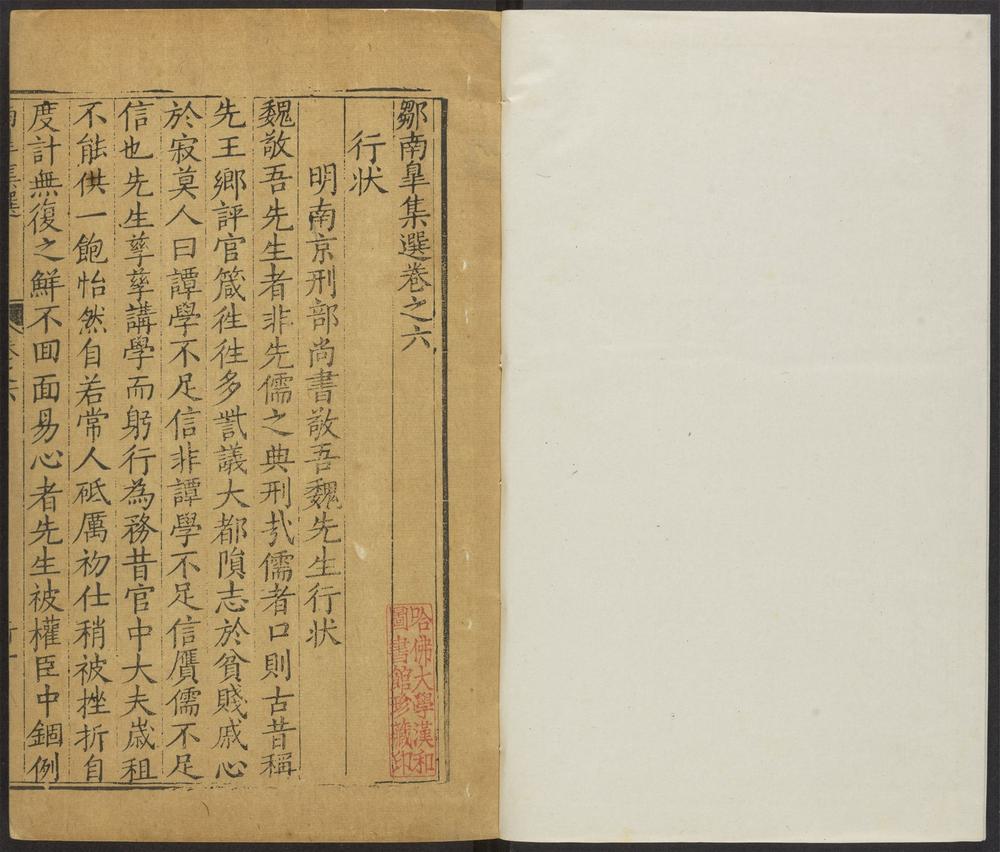 鄒南臯集選卷之六
行状
明南京刑部尚書敬吾魏先生行状
魏敬吾先生者非先儒之典刑㢤儒者口則古昔稱
先王鄉評官箴徃徃多訾議大都隕志於貧賤戚心
於寂莫人曰譚學不足信非譚學不足信贋儒不足
信也先生孳孳講學而躬行為務昔官中大夫歳租
不能供一飽怡然自若常人砥厲初仕稍被挫折自
度計無復之鮮不囬面易心者先生被權臣中錮例
哈佛大學漢和
圖書館珍藏印